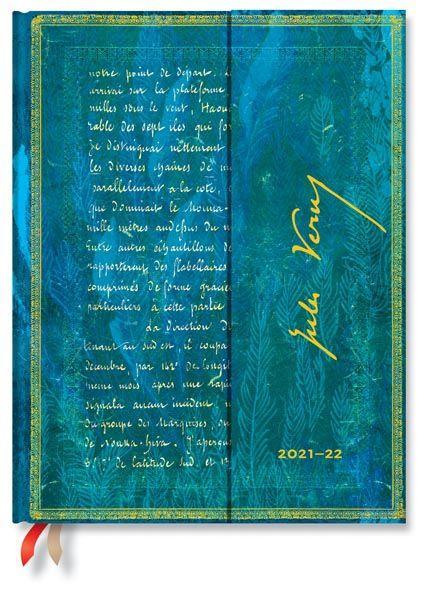 notre point de départ.
arrivai sur la plateforme
milles sous le vent, Haou
rable des sept iles qui for
Je distinguai nettement
les diverses chaines de m
parallelement à la côte,
que dominait le Mouna-
mille mètres au dessus du n
entre autres échantillons de
rapportèrent des flabellaires
comprimés de forme gracie
particuliers à cette partie
La direction D
tenant au sud est, il coupa
décembre, par 142° de longit
meme mois après une rapi
signala aucun incident, n
du groupe des Marquises, qu
de Nouka-Hiva. J'aperçus
de latitude sud, et 13
Jules Verne
2021–22